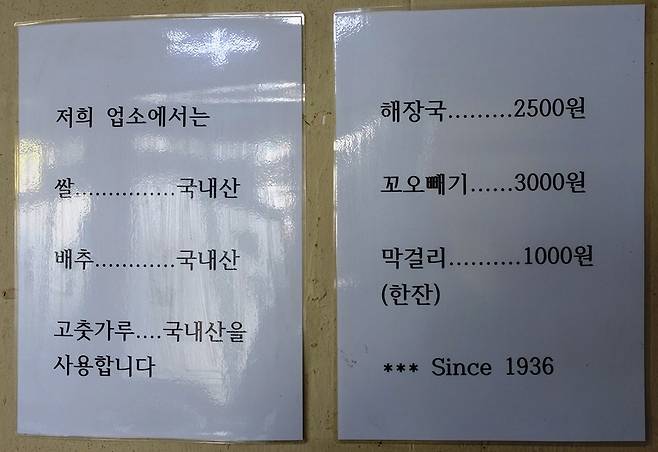 저희 업소에서는
쌀...............국내산
배추............국내산
고춧가루....국내산을
사용합니다
해장국.........2500원
꼬오빼기......3000원
막걸리..........1000원
(한잔)
*** Since 1936